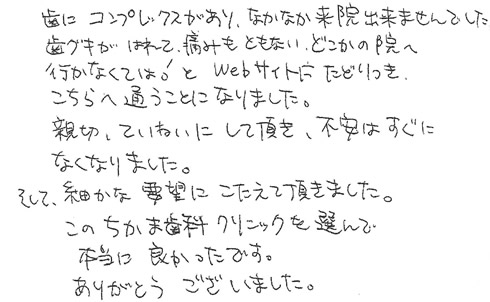 歯に コンプレックスがあり、なかなか来院出来ませんでした
歯グキが はれて、痛みも ともない、どこかの院へ
行かなくては！と Webサイトに たどりつき、
こちらへ 通うことに なりました。
親切、ていねいに して頂き、不安は すぐに
なくなりました。
そして、細かな 要望に こたえて頂きました。
この ちかま歯科 クリニックを 選んで
本当に 良かったです。
ありがとう ございました。